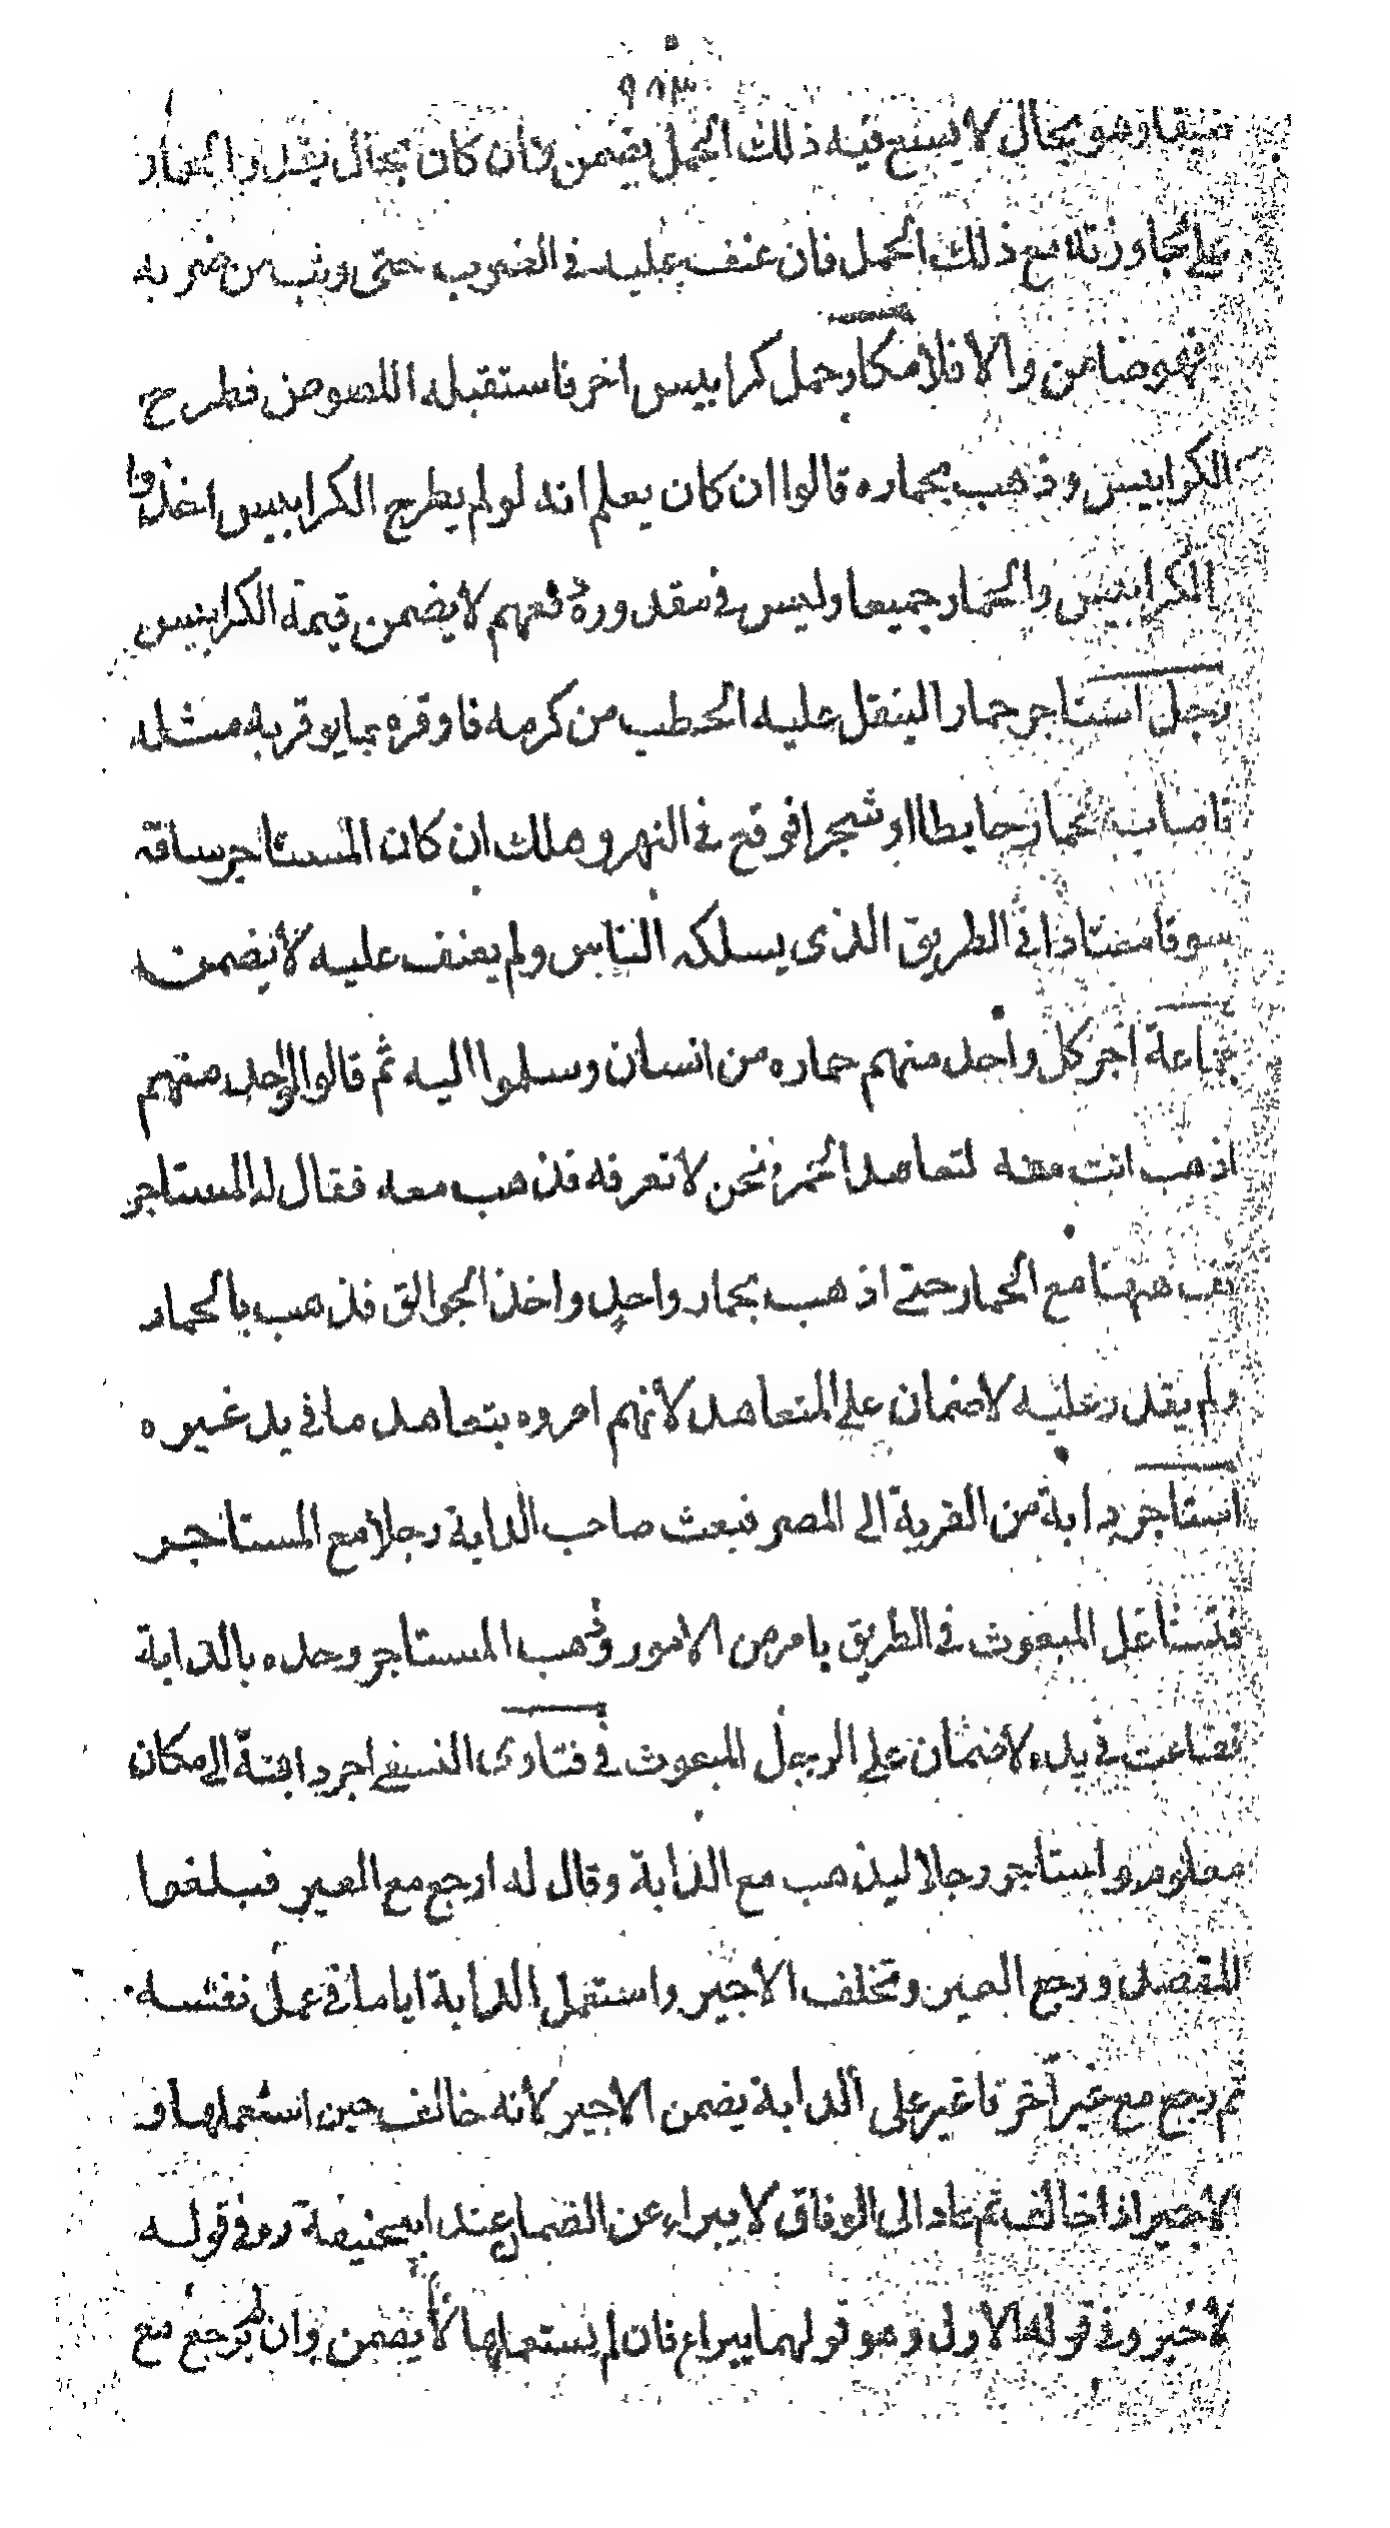 ٩٥٣
ضيقا وهو بحال لا يسع فيه ذلك الحمل يضمن وان كان بحال يقدر الحمار
على مجاوزته مع ذلك الحمل فان عنف عليه في الضرب حتى وثب من ضربه
فهو ضامن والا فلا مكار حمل كرابيس اخر فاستقبله اللصوص فطرح
الكرابيس وذهب بحماره قالوا ان كان يعلم انه لو لم يطرح الكرابيس اخذوا
الكرابيس والحمار جميعا وليس في مقدوره دفعهم لا يضمن قيمة الكرابيس
رجل استاجر حمارا لينقل عليه الحطب من كرمه فاوقره بما يوقر به مثله
فاصاب الحمار حايطا او شجرا فوقع في النهر وهلك ان كان المستاجر ساقه
سوقا معتادا في الطريق الذى يسلكه الناس ولم يعنف عليه لا يضمن
جماعة اجر كل واحد منهم حماره من انسان وسلموا اليه ثم قالوا لواحد منهم
اذهب انت معه لتعاهد الحمر ونحن لا نعرفه فذهب معه فقال له المستاجر
قف ههنا مع الحمار حتى اذهب بحمار واحد واخذ الجوالق فذهب بالحمار
ولم يقدر عليه لا ضمان على المتعاهد لانهم امروه بتعاهد ما في يد غيره
استاجر دابة من القرية الى المصر فبعث صاحب الدابة رجلا مع المستاجر
فتشاغل المبعوث في الطريق بامر من الامور وذهب المستاجر وحده بالدابة
فضاعت في يده لا ضمان على الرجل المبعوث في فتاوى النسفي اجر دابته الى مكان
معلوم واستاجر رجلا ليذهب مع الدابة وقال له ارجع مع العير فبلغها
المقصد ورجع العير وتخلف الاجير واستعمل الدابة اياما في عمل نفسه
ثم رجع مع عير اخر فاغير على الدابة يضمن الاجير لانه خالف حين استعملها و
الاجير اذا خالف ثم عاد الى الوفاق لا يبراء عن الضمان عند ابى حنيفة ره في قوله
الاخير وفي قوله الاول وهو قولهما يبراء فان لم يستعملها لا يضمن وان لم يرجع مع